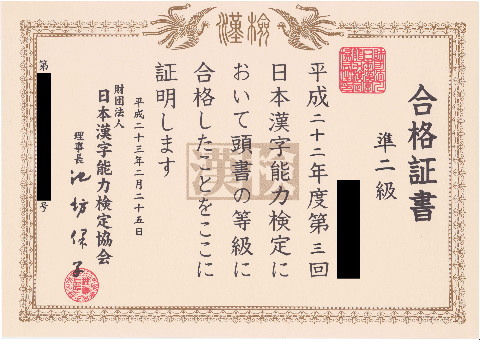 漢検
合格証書
準二級
平成二十二年度第三回
日本漢字能力検定に
おいて頭書の等級に
合格したことをここに
証明します
平成二十三年二月二十五日
財団法人
日本漢字能力検定協会
理事長 池坊保子
第
号
漢検